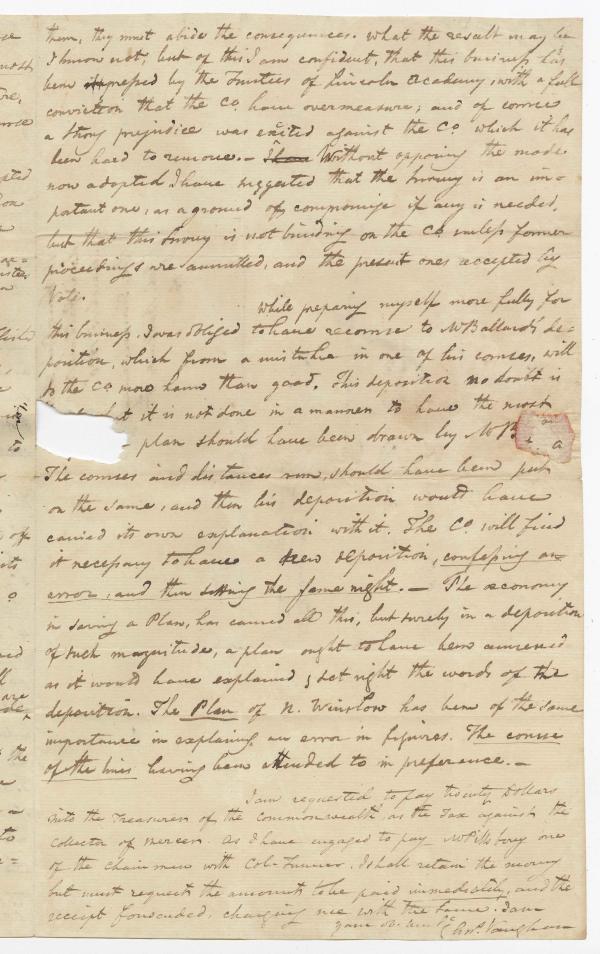 them, they must abide the consequences. What the result may be
I know not, but of this I am confident, that this business has
been pressed by the Trustees of Lincoln Academy, with a full
conviction that the Co. have overmeasure; and of course
a strong prejudice was excited against the Co. which it has
been hard to remove. — Without opposing the mode
now adopted I have suggested that the Survey is an im-
portant one, as a ground of compromise if any is needed,
but that this Survey is not binding on the Co. unless former
proceedings are annulled, and the present ones accepted by
Vote.
While preparing myself more fully for
this business, I was obliged to have recourse to Mr Ballard's de-
position, which from a mistake in one of his courses, will
do the Co. more harm than good. This deposition no doubt is
but it is not done in a manner to have the most
plan should have been drawn by Mr B a
The courses and distances run, should have been put
on the same, and then his deposition would have
carried its own explanation with it. The Co. will find
it necessary to have a new deposition, confessing an
error, and then setting the same right. — The œconomy
in saving a Plan, has caused all this, but surely in a deposition
of such magnitude, a plan ought to have been annexed
as it would have explained & set right the words of the
deposition. The Plan of N. Winslow has been of the same
importance in explaining an error in figures. The course
of the lines having been attended to in preference. —
I am requested to pay twenty Dollars
into the Treasurer of the Commonwealth, as the Tax against the
Collector of Mercer. As I have engaged to pay Mr Pillsbury one
of the chainmen with Col. Turner, I shall retain the money
but must request the amount to be paid immediately, and the
receipt forwarded, charging me with the same. I am
your ob. Servt. Chas. Vaughan